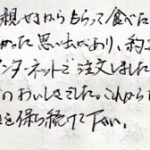 親せきからもらって食べた
かった思い出があり、約
ンターネットで注文しました
のおいしさでした。これから
を保ち続けて下さい。